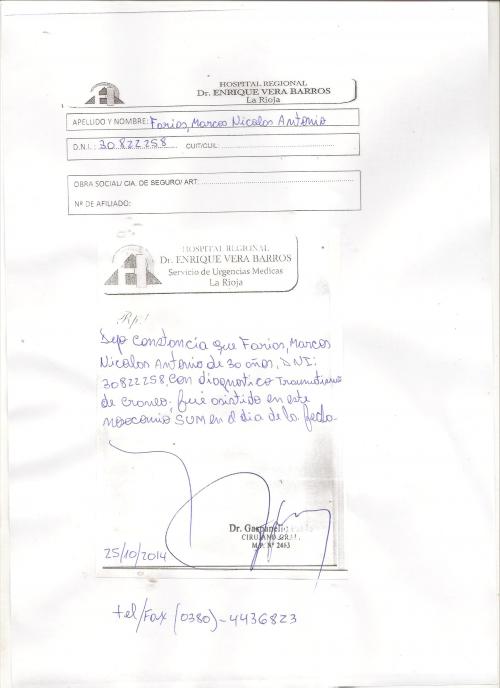 HOSPITAL REGIONAL
Dr. ENRIQUE VERA BARROS
La Rioja
APELLIDO Y NOMBRE: Farias, Marcos Nicolas Antonio
D.N.I.: 30.822258 CUIT/CUIL:
OBRA SOCIAL/ CIA. DE SEGURO/ ART:
Nº DE AFILIADO:
HOSPITAL REGIONAL
Dr. ENRIQUE VERA BARROS
Servicio de Urgencias Medicas
La Rioja
Rp.:
Dejo constancia que Farias, Marcos
Nicolas Antonio de 30 años, DNI:
30822258, con diagnostico Traumatismo
de craneo, fue asistido en este
nosocomio SUM en el dia de la fecha.
Dr. Gaspanello
CIRUJANO GRAL.
M.P. Nº 2463
25/10/2014
tel/Fax (0380)-4436823